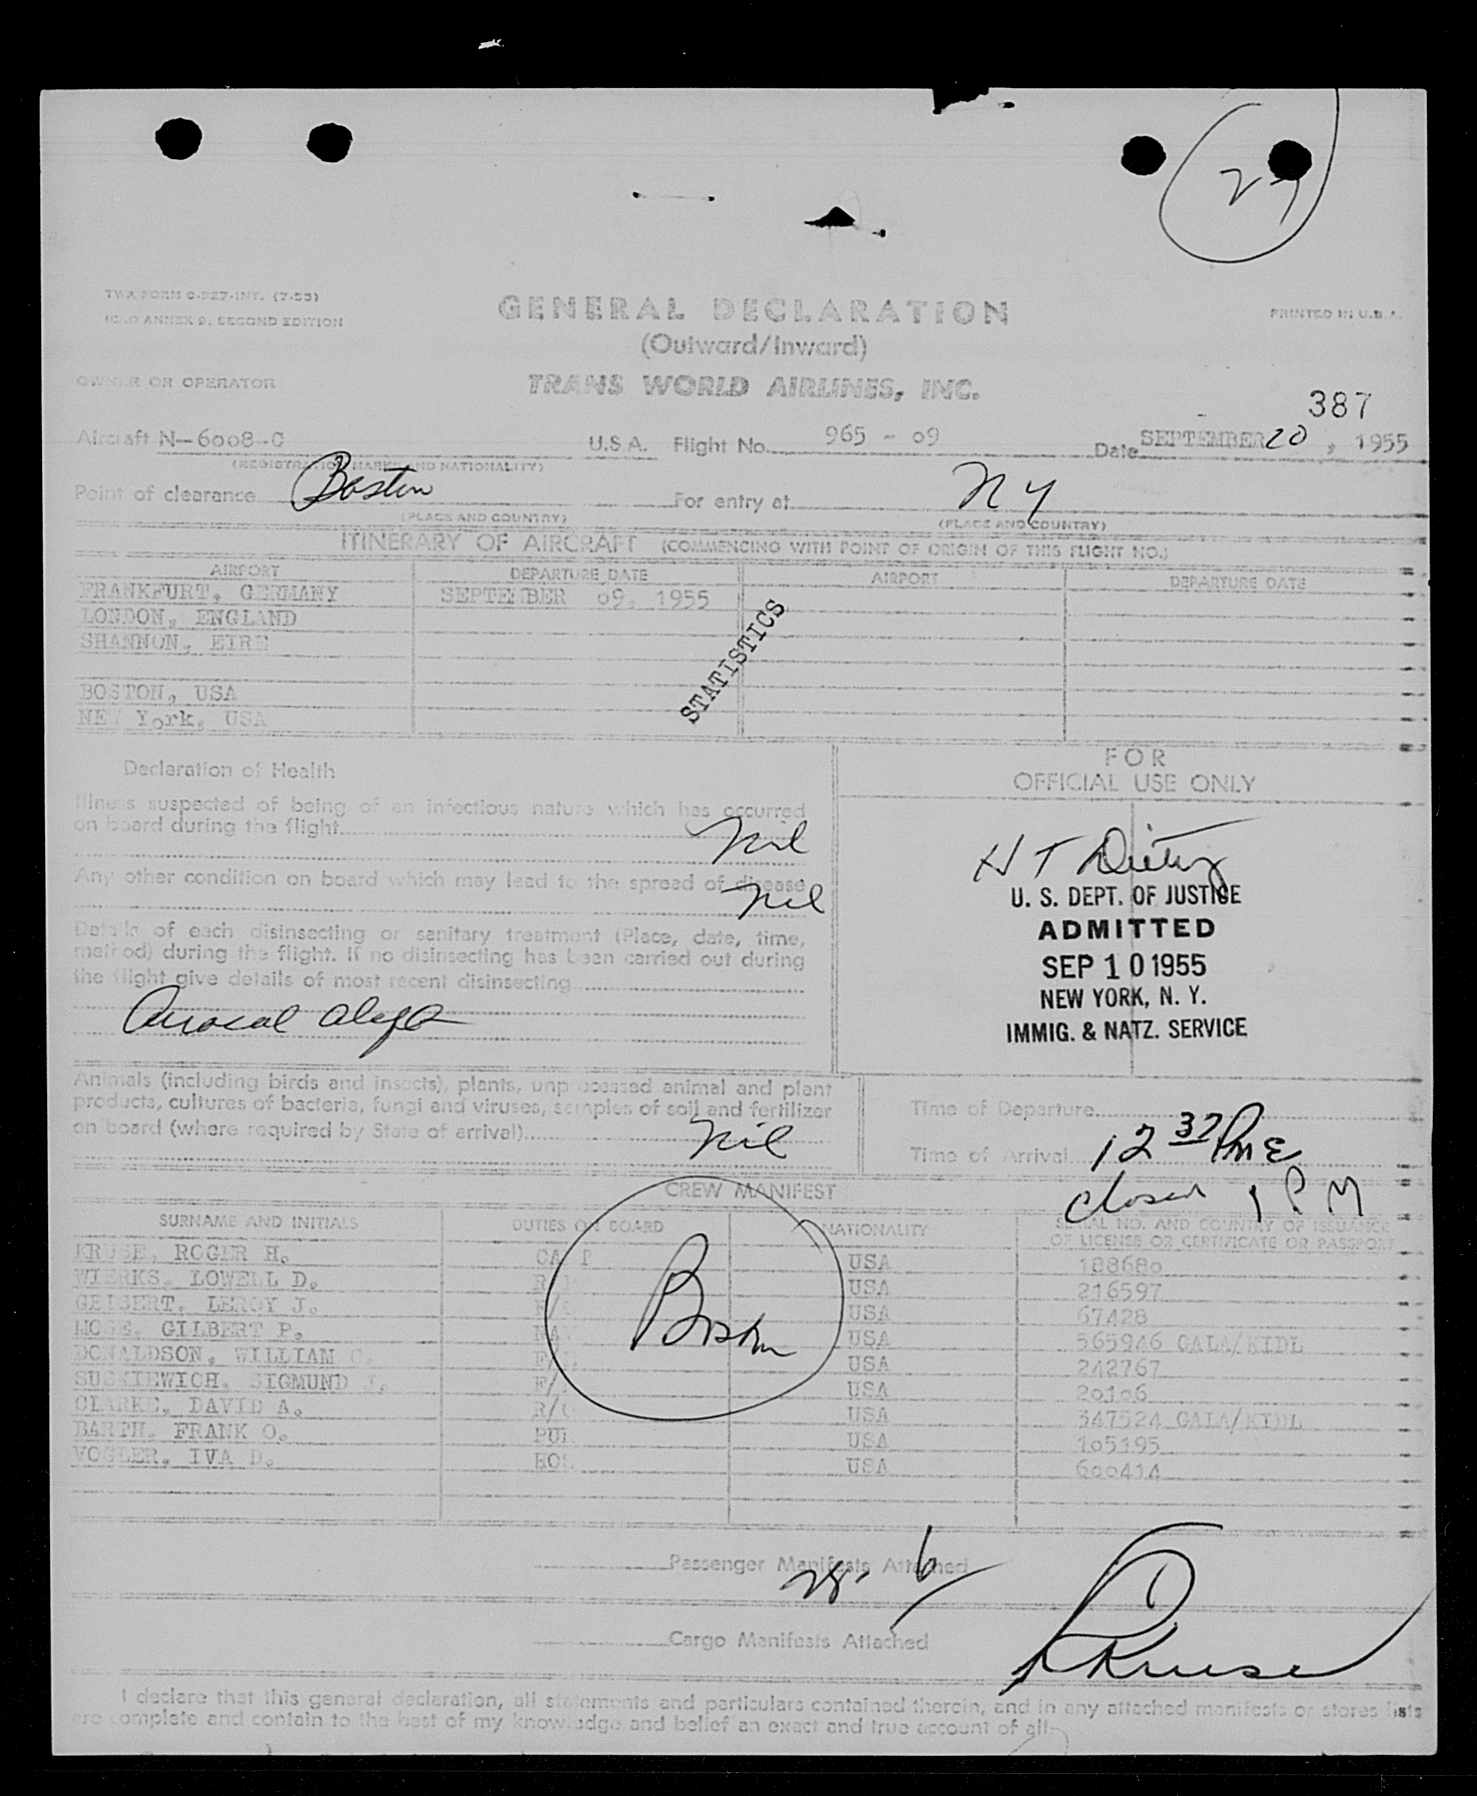 27
TWA FORM O-927-INT. (7-53)
ICAO ANNEX 9, SECOND EDITION
GENERAL DECLARATION
(Outward/Inward)
PRINTED IN U.S.A.
OWNER OR OPERATOR
TRANS WORLD AIRLINES, INC.
387
Aircraft N-6008-C U.S.A. Flight No. 965 - 09 Date SEPTEMBER 20, 1955
(REGISTRATION MARKS AND NATIONALITY)
Point of clearance Boston For entry at NY
(PLACE AND COUNTRY) (PLACE AND COUNTRY)
ITINERARY OF AIRCRAFT (COMMENCING WITH POINT OF ORIGIN OF THIS FLIGHT NO.)
AIRPORT DEPARTURE DATE AIRPORT DEPARTURE DATE
FRANKFURT, GERMANY SEPTEMBER 09, 1955
LONDON, ENGLAND
SHANNON, EIRE
STATISTICS
BOSTON, USA
NEW York, USA
Declaration of Health
Illness suspected of being of an infectious nature which has occurred
on board during the flight
Nil
Any other condition on board which may lead to the spread of disease
Nil
Details of each disinsecting or sanitary treatment (Place, date, time,
method) during the flight. If no disinsecting has been carried out during
the flight give details of most recent disinsecting
FOR
OFFICIAL USE ONLY
H T
U. S. DEPT. OF JUSTICE
ADMITTED
SEP 10 1955
NEW YORK, N. Y.
IMMIG. & NATZ. SERVICE
Animals (including birds and insects), plants, unprocessed animal and plant
products, cultures of bacteria, fungi and viruses, samples of soil and fertilizer
on board (where required by State of arrival) Nil
Time of Departure
Time of Arrival 12 37 PM E
closed 1 PM
CREW MANIFEST
SURNAME AND INITIALS DUTIES ON BOARD NATIONALITY SERIAL NO. AND COUNTRY OF ISSUANCE
OF LICENSE OR CERTIFICATE OR PASSPORT
KRUSE, ROGER H. CAPT USA 188680
WIERKS, LOWELL D. USA 216597
GEISERT, LEROY J. USA 67428
MOSS, GILBERT P. NAV USA 565946 GALA/KIDL
DONALDSON, WILLIAM C. F/ USA 242767
SUSKIEWICH, SIGMUND J. F/ USA 20106
CLARKE, DAVID A. R/O USA 347524 GALA/KIDL
BARTH, FRANK O. PUR USA 105195
VOGLER, IVA D. HOS USA 600414
Boston
Passenger Manifests Attached
28. 6
Cargo Manifests Attached
R Kruse
I declare that this general declaration, all statements and particulars contained therein, and in any attached manifests or stores lists
are complete and contain to the best of my knowledge and belief an exact and true account of all